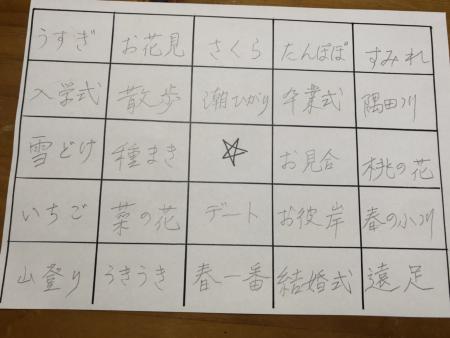 うすぎ お花見 さくら たんぽぽ すみれ
入学式 散歩 潮ひがり 卒業式 隅田川
雪どけ 種まき ☆ お見合 桃の花
いちご 菜の花 デート お彼岸 春の小川
山登り うきうき 春一番 結婚式 遠足